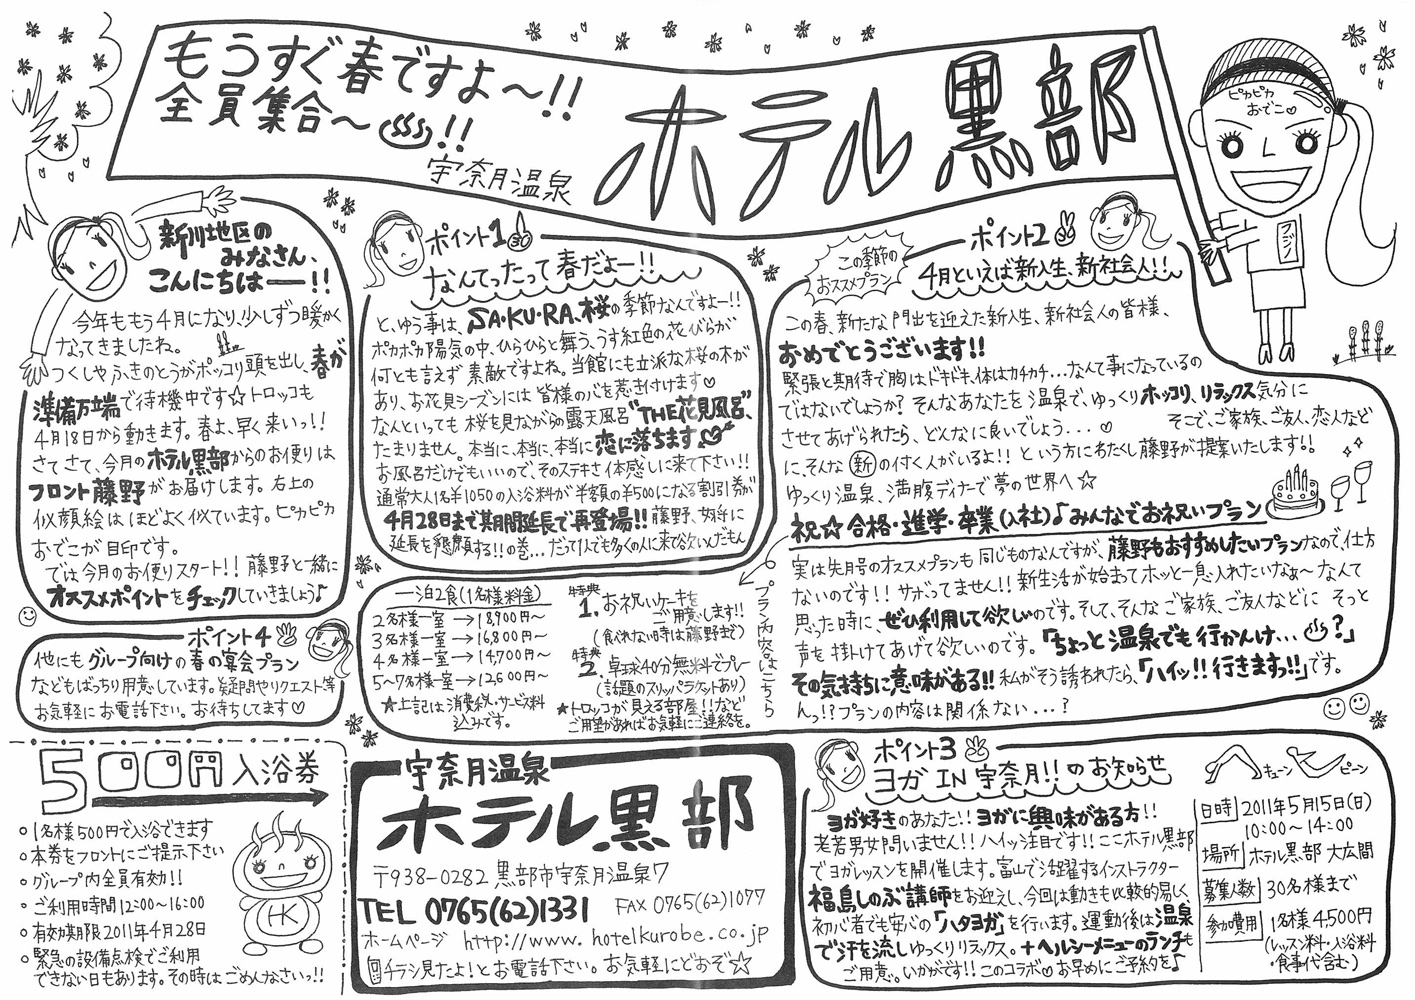 もうすぐ春ですよ〜!!
全員集合〜♨!!
宇奈月温泉
ホテル黒部
ピカピカ
おでこ♡
フジノ
新川地区の
みなさん、
こんにちはー!!
今年ももう4月になり、少しずつ暖かく
なってきましたね。
つくしやふきのとうがポッコリ頭を出し、春が
準備万端で待機中です☆トロッコも
4月18日から動きます。春よ、早く来いっ!!
さてさて、今月のホテル黒部からのお便りは、
フロント藤野がお届けします。右上の
似顔絵はほどよく似ています。ピカピカ
おでこが目印です。
では今月のお便りスタート!! 藤野と一緒に
オススメポイントをチェックしていきましょう♪
ポイント1
なんてったって春だよー!!
と、ゆう事は、SA・KU・RA、桜の季節なんですよー!!
ポカポカ陽気の中、ひらひらと舞う、うす紅色の花びらが
何とも言えず素敵ですよね。当館にも立派な桜の木が
あり、お花見シーズンには皆様の心を惹き付けます♡
なんといっても桜を見ながらの露天風呂"THE花見風呂"、
たまりません。本当に、本当に、本当に恋に落ちます♡
お風呂だけでもいいので、そのステキさ体感しに来て下さい!!
通常大人1名¥1050の入浴料が半額の¥500になる割引券が
4月28日まで期間延長で再登場!! 藤野、女将に
延長を懇願する!!の巻… だって1人でも多くの人に来て欲しいんだもん
ポイント2
この季節の
おススメプラン
4月といえば新入生、新社会人!!
この春、新たな門出を迎えた新入生、新社会人の皆様、
おめでとうございます!!
緊張と期待で胸はドキドキ、体はカチカチ…なんて事になっているの
ではないでしょうか? そんなあなたを温泉で、ゆっくりホッコリ、リラックス気分に
させてあげられたら、どんなに良いでしょう...♡ そこで、ご家族、ご友人、恋人など
に、そんな新の付く人がいるよ!! という方にわたくし藤野が提案いたします!!
ゆっくり温泉、満腹ディナーで夢の世界へ☆
祝☆合格・進学・卒業(入社)♪みんなでお祝いプラン
実は先月号のオススメプランも同じものなんですが、藤野もおすすめしたいプランなので、仕方
ないのです!! サボってません!! 新生活が始まってホッと一息入れたいなぁ〜なんて
思った時に、ぜひ利用して欲しいのです。そして、そんなご家族、ご友人などに そっと
声を掛けてあげて欲しいのです。「ちょっと温泉でも行かんけ...♨?」
その気持ちに意味がある!! 私がそう誘われたら、「ハイッ!!行きますっ!!」です。
ん?!?プランの内容は関係ない...?
プラン内容はこちら
一泊2食(1名様料金)
2名様一室 → 18,900円〜
3名様一室 → 16,800円〜
4名様一室 → 14,700円〜
5〜7名様一室 → 12,600円〜
★上記は消費税・サービス料
込みです。
特典
1. お祝いケーキを
ご用意します!!
(食べれない時は藤野まで)
特典
2. 卓球40分無料でプレー
(話題のスリッパラケットあり)
★トロッコが見える部屋!!など
ご希望があればお気軽にご連絡を。
ポイント4
他にもグループ向けの春の宴会プラン
などもばっちり用意しています。疑問やリクエスト等
お気軽にお電話下さい。お待ちしてます♡
500円入浴券
○1名様500円で入浴できます
○本券をフロントにご提示下さい
○グループ内全員有効!!
○ご利用時間12:00〜16:00
○有効期限2011年4月28日
○緊急の設備点検でご利用
できない日もあります。その時はごめんなさいっ!!
HK
宇奈月温泉
ホテル黒部
〒938-0282 黒部市宇奈月温泉7
TEL 0765(62)1331 FAX 0765(62)1077
ホームページ http://www.hotelkurobe.co.jp
チラシ見たよ!とお電話下さい。お気軽にどおぞ☆
ポイント3
ヨガIN宇奈月!!のお知らせ
キューン
ピーン
ヨガ好きのあなた!! ヨガに興味がある方!!
老若男女問いません!! ハイッ注目です!! ここホテル黒部
でヨガレッスンを開催します。富山で活躍するインストラクター
福島しのぶ講師をお迎えし、今回は動きも比較的易しく、
初心者でも安心の「ハタヨガ」を行います。運動後は温泉
で汗を流しゆっくりリラックス。+ヘルシーメニューのランチも
ご用意。いかがです!! このコラボ♡お早めにご予約を♪
日時 2011年5月15日(日)
10:00〜14:00
場所 ホテル黒部 大広間
募集人数 30名様まで
参加費用 1名様4,500円
(レッスン料・入浴料
・食事代含む)